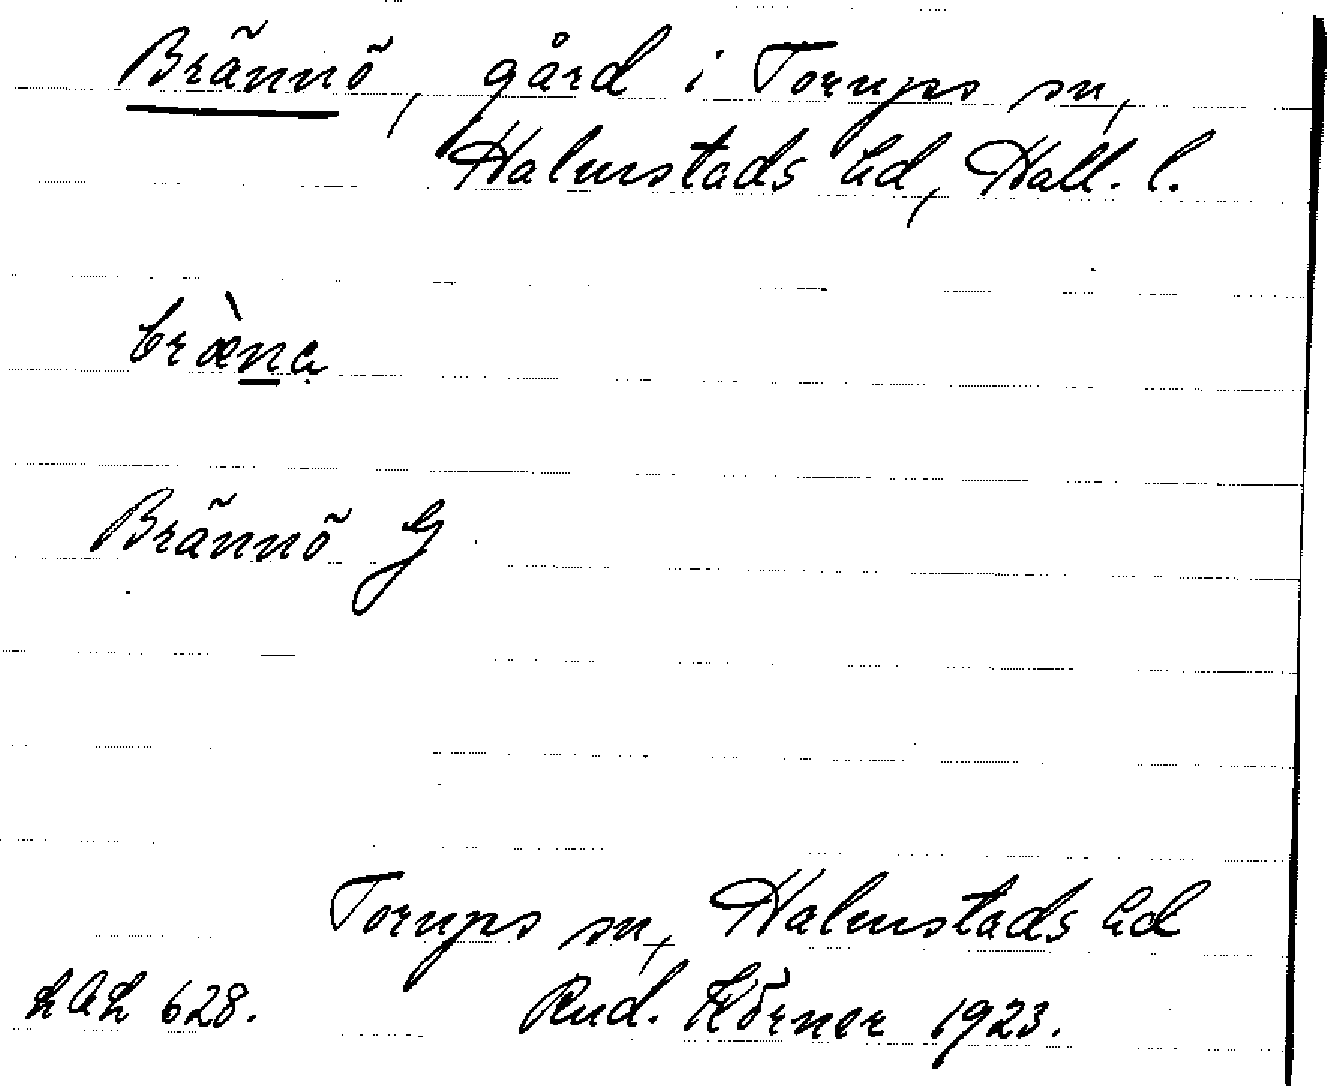 Brännö, gård i Torups sn,
Halmstads hd, Hall. l.
bræ̀na
Brännö G
Torups sn, Halmstads hd
628. Rud. Körner 1923.